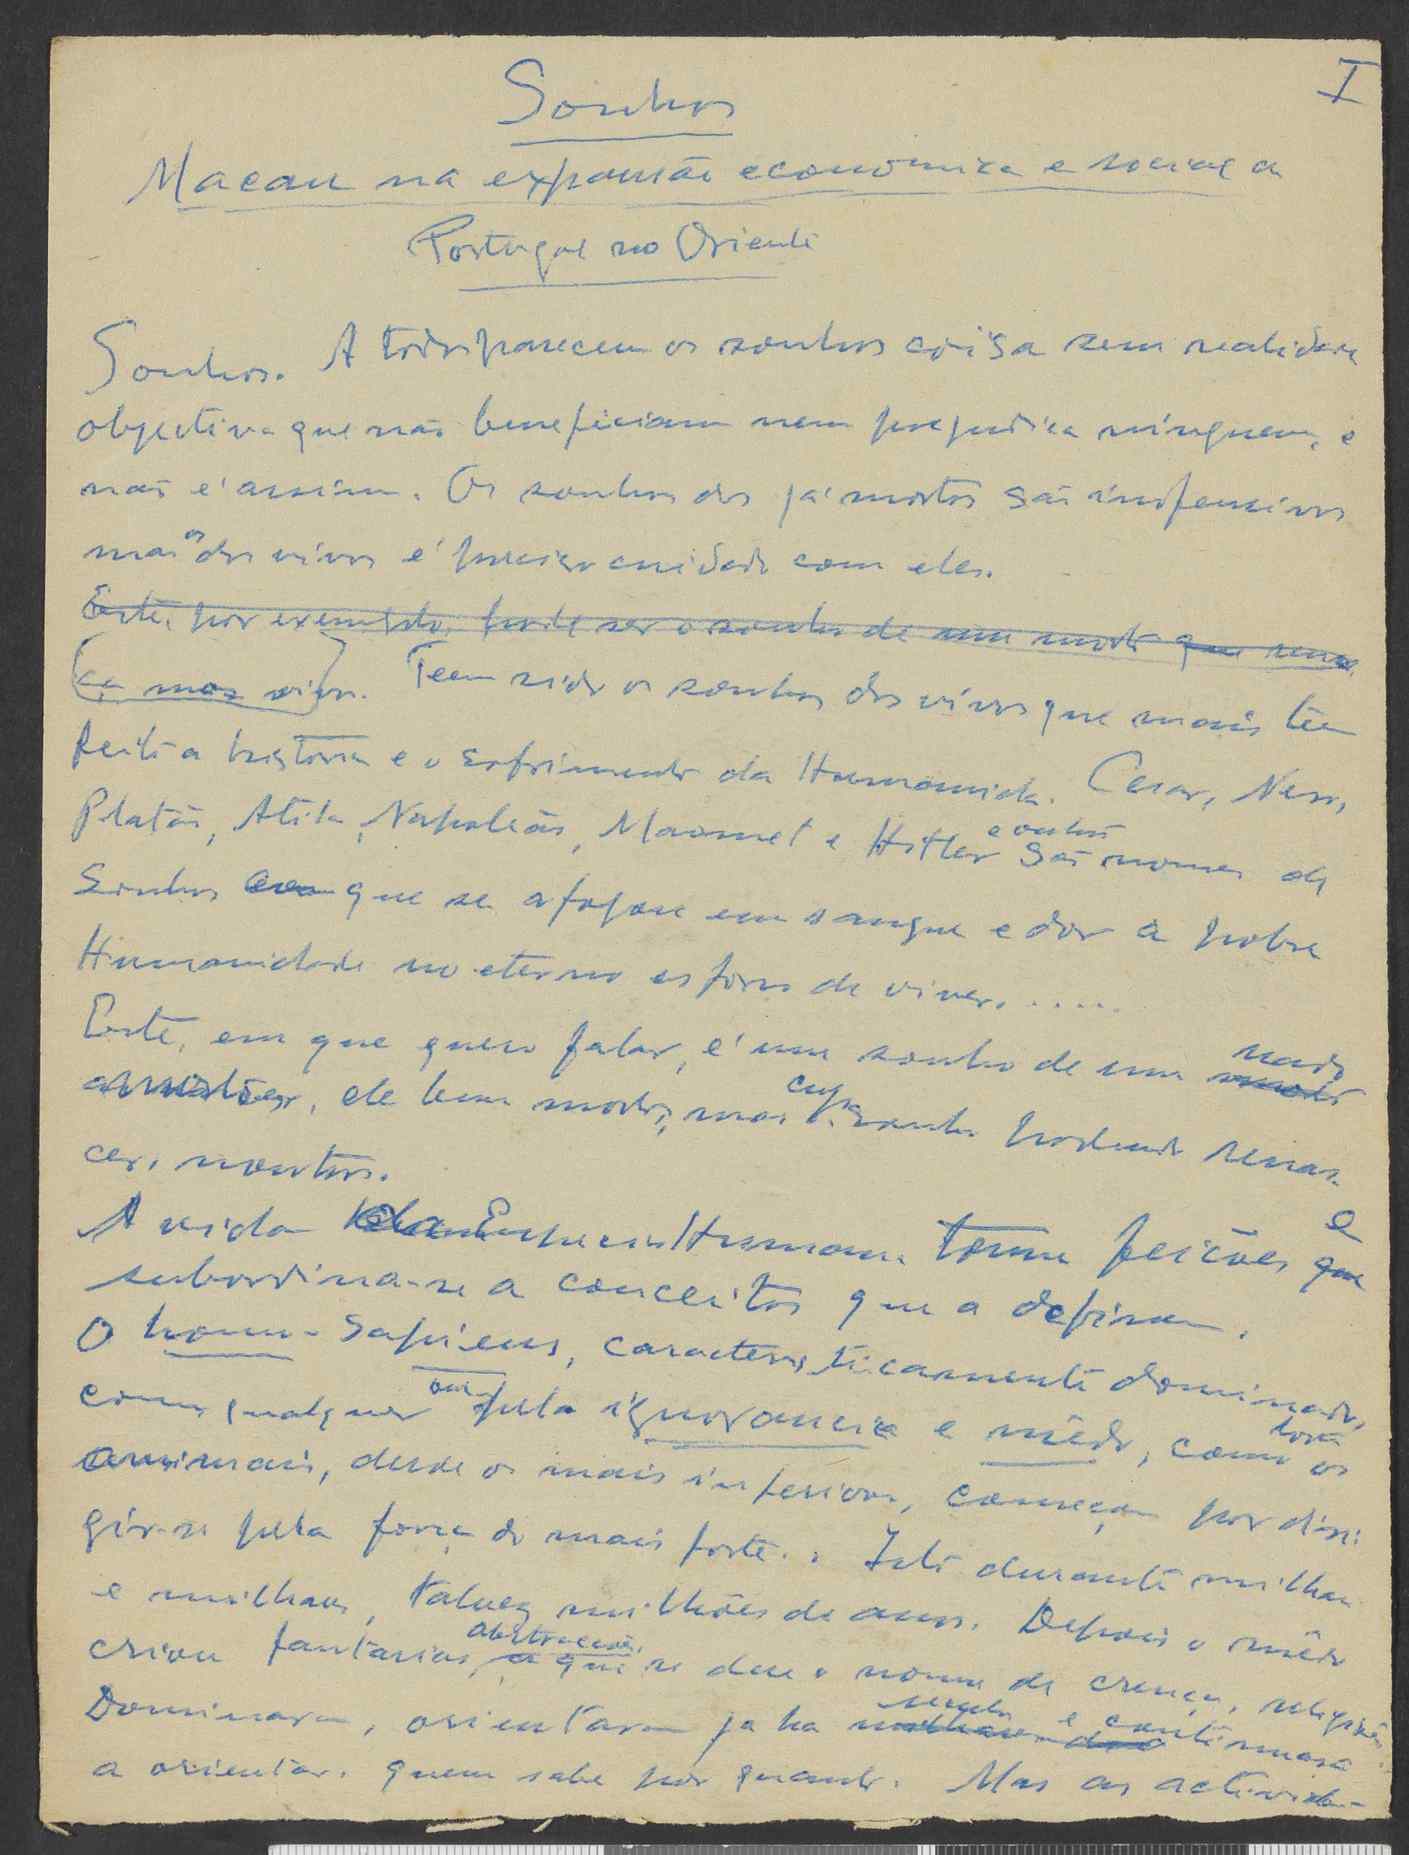 I
Sonhos
Macau na expansão económica e social de
Portugal no Oriente
Sonhos. A todos parecem os sonhos coisa sem realidade
objectiva que não beneficiam nem prejudica ninguem, e
não é assim. Os sonhos dos já mortos são inofensivos
mas os dos vivos é preciso cuidado com eles.
Este, por exemplo, pode ser o sonho de um morto que renas
ça nos vivos. Teem sido os sonhos dos vivos que mais têm
feito a história e o sofrimento da Humanidade. Cesar, Nero,
Platão, Atila, Napoleão, Maomet e Hitler e outros são nomes de
Sonhos que se afogou em sangue e dor a pobre
Humanidade no eterno esforço de viver. . . . . .
Este, em que quero falar, é um sonho de um
ele bem morto, mas cujo sonho podendo renas-
cer, noutros.
A vida da Especie Humana toma feições e
subordina-se a conceitos que a definem.
O homo-sapiens, caracteristicamente dominado,
como qualquer pela ignorancia e mêdo, como todos os
animais, desde os mais inferiores, começou por diri-
gir-se pela força do mais forte. Isto durante milhares
e milhares, talvez milhões de anos. Depois o mêdo
criou fantasias, abstracções, a que se deu o nome de crença, religiões.
Dominaram, orientaram ja ha seculos e continuará
a orientar. quem sabe por quando. Mas as activida-